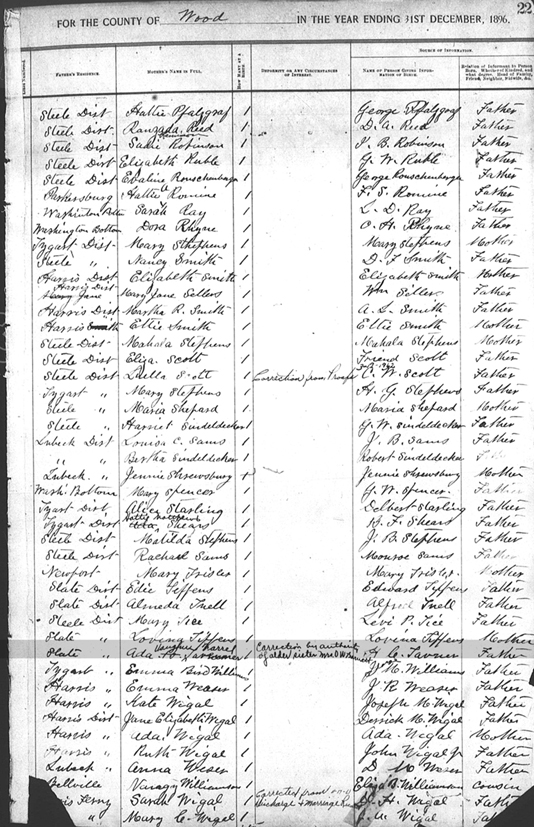 22
FOR THE COUNTY OF Wood IN THE YEAR ENDING 31ST DECEMBER, 1896.
SOURCE OF INFORMATION.
FATHER'S RESIDENCE. MOTHER'S NAME IN FULL. DEFORMITY OR ANY CIRCUMSTANCES OF INTEREST. NAME OF PERSON GIVING INFORMATION OF BIRTH.
Steele Dist Hattie Pfalzgraf 1 George Pfalzgraf Father
Steele Dist Reed 1 D. A. Reed Father
Steele Dist Sadie Robinson 1 J. B. Robinson Father
Steele Dist Elizabeth Ruble 1 G. W. Ruble Father
Steele Dist Evaline Rouschenberger 1 George Rouschenberger Father
Parkersburg Hattie Romine 1 F. S. Romine Father
Washinton Bottom Sarah Ray 1 L. D. Ray Father
Washington Bottom Dora Rhyne 1 C. H. Rhyne Father
Tygart Dist Mary Stephens 1 Mary Stephens Mother
Steele " Nancy Smith 1 D. F. Smith Father
Harris Dist Elizabeth Smith 1 Elizabeth Smith Mother
Harris Dist
Mary Jane Mary Jane Sellers 1 Wm Seller Father
Harris Dist Martha R. Smith 1 A. L. Smith Father
Harris Ettie Smith 1 Ettie Smith Mother
Steele Dist Mahala Stephens 1 Mahala Stephens Mother
Steele Dist Eliza Scott 1 Friend Scott Father
Steele Dist Luella Scott 1 Correction from Proofs C. W. Scott Father
Tygart " Mary Stephens 1 H. G. Stephens Father
Steele " Maria Shepard 1 Maria Shepard Mother
Steele " Harriet Sindeldecker 1 G. W. Sindeldecker Father
Lubeck Dist Louisa C. Sams 1 J. B. Sams Father
" " Bertha Sindeldecker 1 Robert Sindeldecker
Lubeck " Jennie Shrewsbury 1 Jennie Shrewsbury Mother
Wash. Bottom Mary Spencer 1 G. W. Spencer Father
Tygart Dist Alice Starling 1 Delbert Starling Father
Tygart Dist Shears 1 B. F. Shears Father
Steele Dist Matilda Stephens 1 J. B. Stephens Father
Steele Dist Rachael Sams 1 Monroe Sams Father
Newport Mary Trisler 1 Mary Trisler Mother
Slate Dist Edie Tiffens 1 Edward Tiffens Father
Slate Dist Almeda Tnell 1 Alfred Tnell Father
Steele Dist Mary Tice 1 Levi P. Tice Father
Slate " Lovina Tiffens 1 Lovina Tiffens Mother
Slate " Ada 1 Correction by authority of Father
Tygart " Emma Bird Williams 1 J. M. Williams Father
Harris " Emma Weaser 1 J. R. Weaser Father
Harris " Kate Wigal 1 Joseph M. Wigal Father
Harris Dist Jane Elizabeth Wigal 1 Derrick M. Wigal Father
Harris " Ada Wigal 1 Ada Wigal Mother
Harris " Ruth Wigal 1 John Wigal Jr Father
Lubeck " Anna Weser 1 D Weser Father
Bellville Williamson 1 Williamson Cousin
Ferry Sarah Wigal 1 Corrected from Discharge & Marriage D. H. Wigal Father
" Mary C. Wigal 1 J. A. Wigal Father